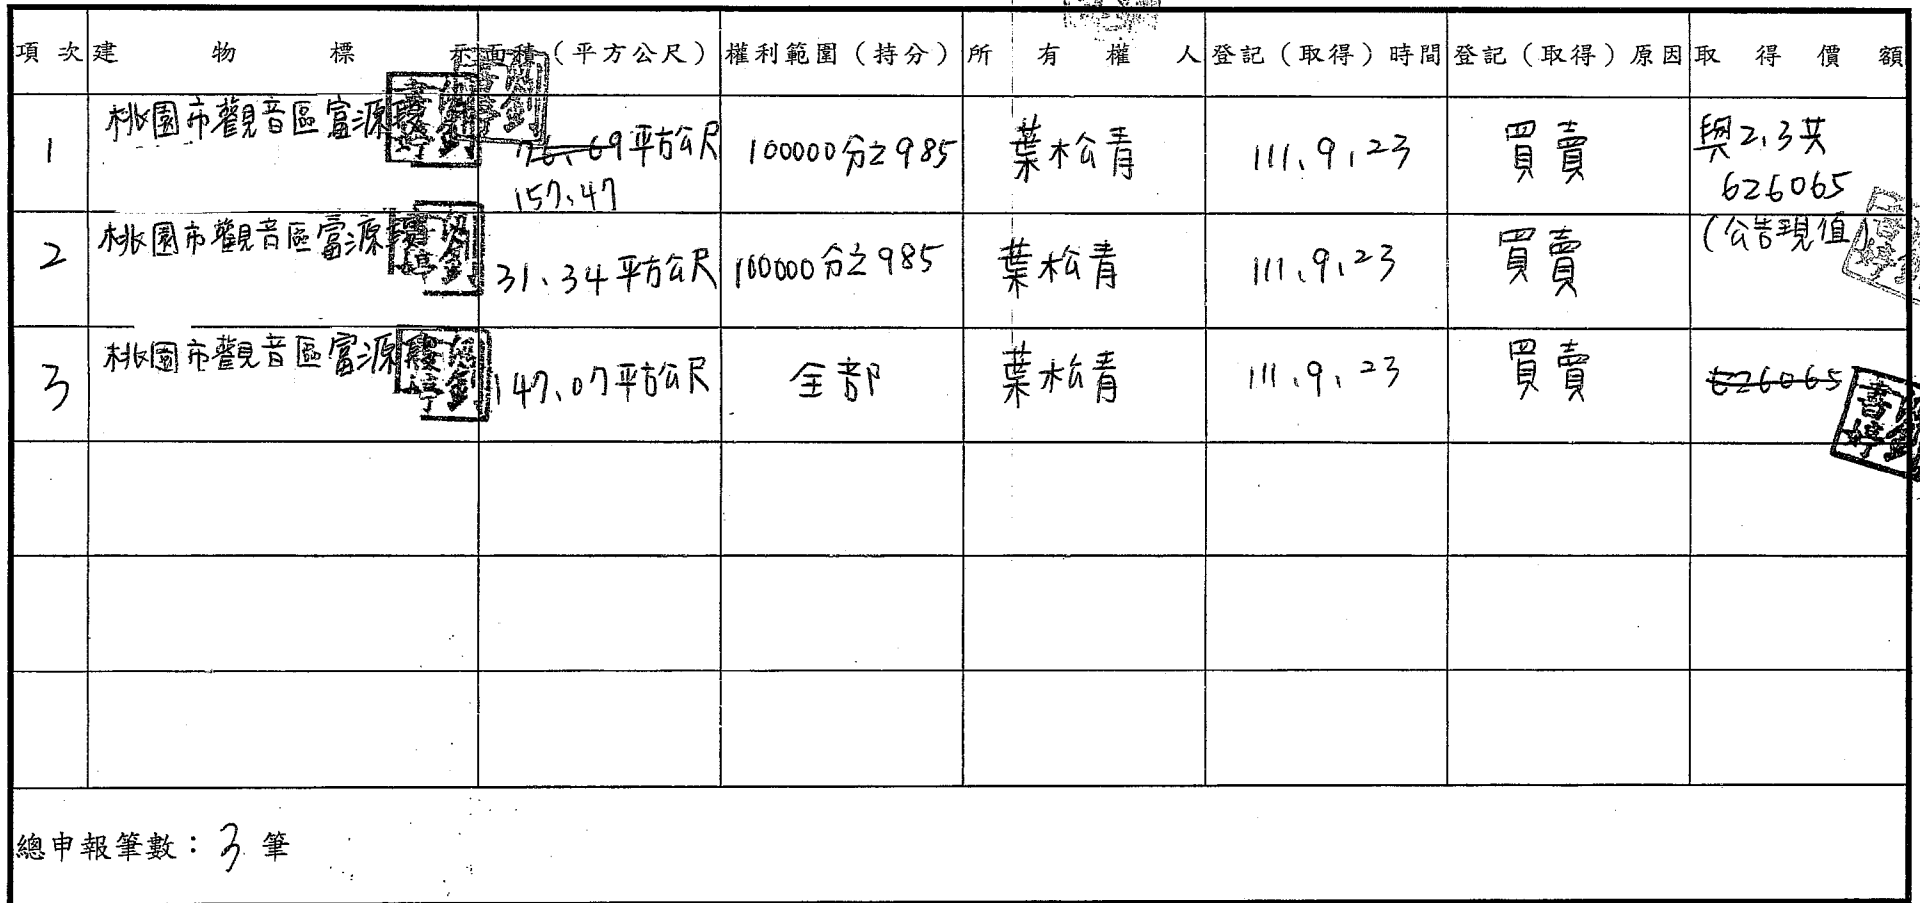 項次 建物標示 面積（平方公尺） 權利範圍（持分） 所有權人 登記（取得）時間 登記（取得）原因 取得價額
1 桃園市觀音區富源段 76.69平方公尺 100000分之985 葉松青 111.9.23 買賣 與2.3共
157.47 626065
2 桃園市觀音區富源段 31.34平方公尺 100000分之985 葉松青 111.9.23 買賣 (公告現值)
3 桃園市觀音區富源段 147.07平方公尺 全部 葉松青 111.9.23 買賣 626065
總申報筆數：3筆